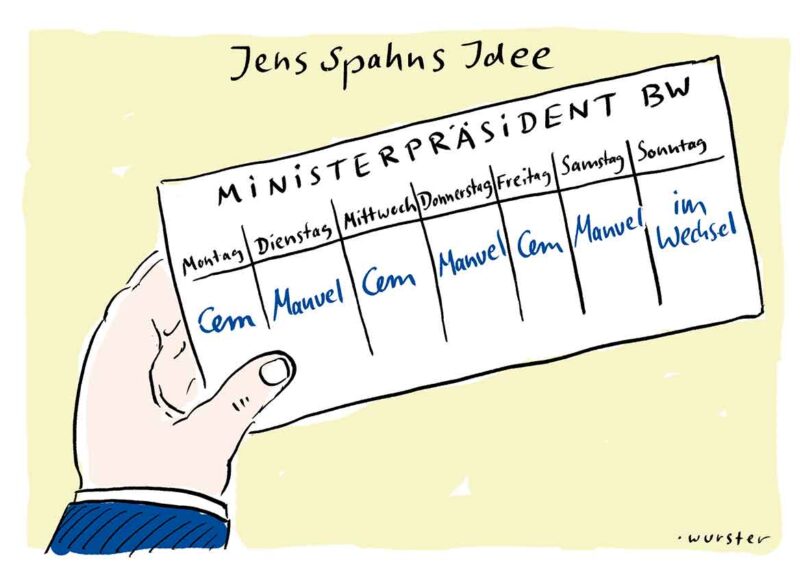 Jens Spahns Idee
MINISTERPRÄSIDENT BW
Montag Dienstag Mittwoch Donnerstag Freitag Samstag Sonntag
Cem Manuel Cem Manuel Cem Manuel im
Wechsel
.wurster